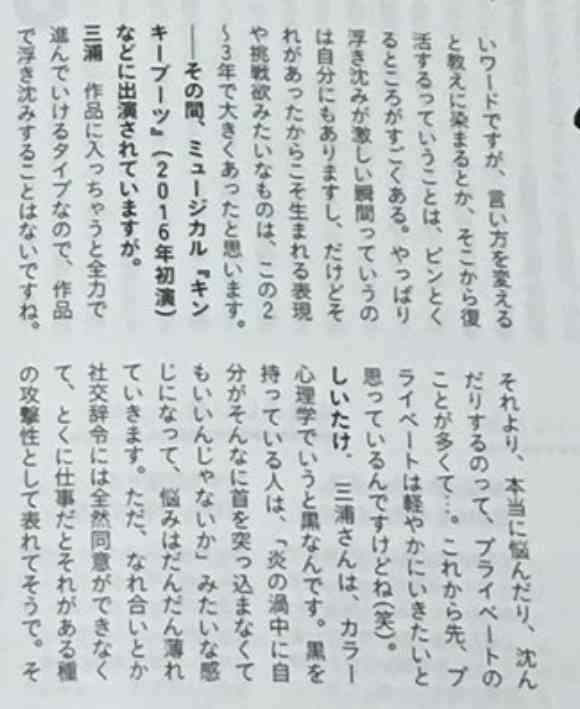 いワードですが、言い方を変える
と教えに染まるとか、そこから復
活するっていうことは、ピンとく
るところがすごくある。やっぱり
浮き沈みが激しい瞬間っていうの
は自分にもありますし、だけどそ
れがあったからこそ生まれる表現
や挑戦欲みたいなものは、この2
~3年で大きくあったと思います。
──その間、ミュージカル『キン
キーブーツ』(2016年初演)
などに出演されていますが。
三浦 作品に入っちゃうと全力で
進んでいけるタイプなので、作品
で浮き沈みすることはないですね。
それより、本当に悩んだり、沈ん
だりするのって、プライベートの
ことが多くて…。これから先、プ
ライベートは軽やかにいきたいと
思っているんですけどね(笑)。
しいたけ. 三浦さんは、カラー
心理学でいうと黒なんです。黒を
持っている人は、「炎の渦中に自
分がそんなに首を突っ込まなくて
もいいんじゃないか」みたいな感
じになって、悩みはだんだん薄れ
ていきます。ただ、なれ合いとか
社交辞令には全然同意ができなく
て、とくに仕事だとそれがある種
の攻撃性として表れてそうで。そ